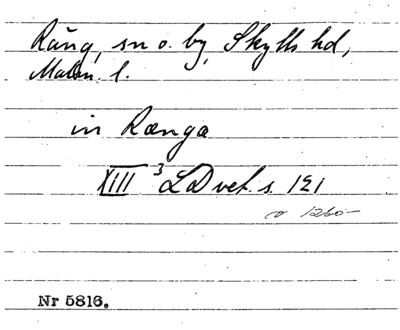 Räng, sn o. by, Skytts hd,
Malm. l.
in Rænga
XIII ³ LD vet. s. 121
o 1260-
Nr 5816.